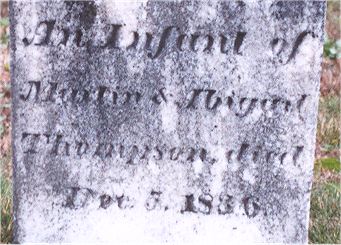 An Infant of
Martin & Abigail
Thompson, died
Dec. 5, 1836